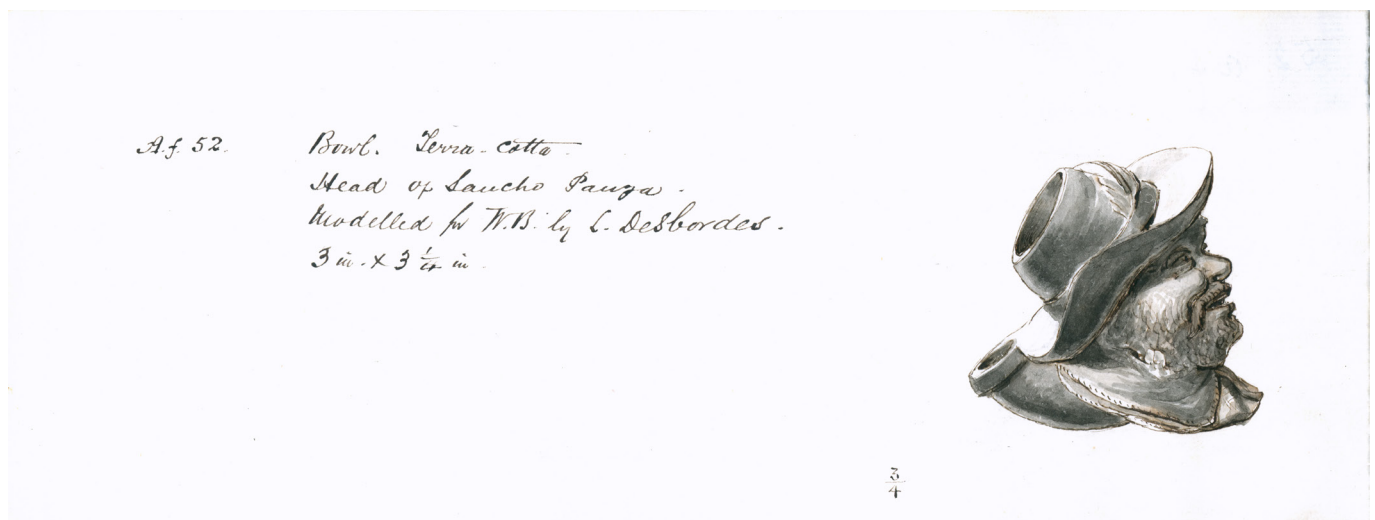 A.f. 52. Bowl. Terra-cotta.
Head of Sancho Panza.
Modelled for W.B. by C. Desbordes.
3 in. x 3 1/4 in.
3/4